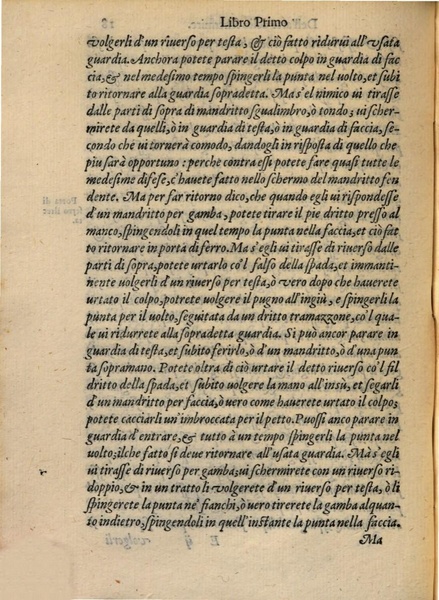 Libro Primo
volgerli d'un riverso per testa, & ciò fatto ridurui all'usata
guardia. Anchora potete parare il detto colpo in guardia di fac
cia, & nel medesimo tempo spingerli la punta nel volto, et subi
to ritornare alla guardia sopradetta. Ma s'el nimico ui tirasse
dalle parti di sopra di mandritto sgualimbro, ò tondo; ui scher-
mirete da quelli, ò in guardia di testa, ò in guardia di faccia, se-
condo che ui tornerà comodo, dandogli in risposta di quello che
piu sarà opportuno: perche contra essi potete fare quasi tutte le
medesime difese, c'hauete fatto nello schermo del mandritto fen
dente. Ma per far ritorno dico, che quando egli ui rispondesse
d'un mandritto per gamba, potete tirare il pie dritto presso al
manco, spingendoli in quel tempo la punta nella faccia, et ciò fat
to ritornare in porta di ferro. Ma s'egli ui tirasse di riuerso dalle
parti di sopra, potete urtarlo co'l falso della spada, et immanti-
nente volgerli d'un riverso per testa, ò vero dopo che hauerete
urtato il colpo, potrete volgere il pugno all'ingiù, e spingerli la
punta per il volto, seguitata da un dritto tramazzone, co'l qua-
le ui ridurrete alla sopradetta guardia. Si può ancor parare in
guardia di testa, et subito ferirlo, ò d'un mandritto, ò d'una pun
ta sopramano. Potete oltra di ciò urtare il detto riverso co'l fil
dritto della spada, et subito volgere la mano all'insù, et segarli
d'un mandritto per faccia, ò vero come haurete urtato il colpo;
potete cacciarli un'imbroccata per il petto. Puossi anco parare in
guardia d'entrare, & tutto à un tempo spingerli la punta nel
volto; ilche fatto si deue ritornare all'usata guardia. Ma s'egli
ui tirasse di riverso per gamba; ui schermirete con un riverso ri-
doppio, & in un tratto li volgerete d'un riverso per testa, ò li
spingerete la punta ne' fianchi, ò vero tirerete la gamba alquan-
to indietro, spingendoli in quell'instante la punta nella faccia.
Ma